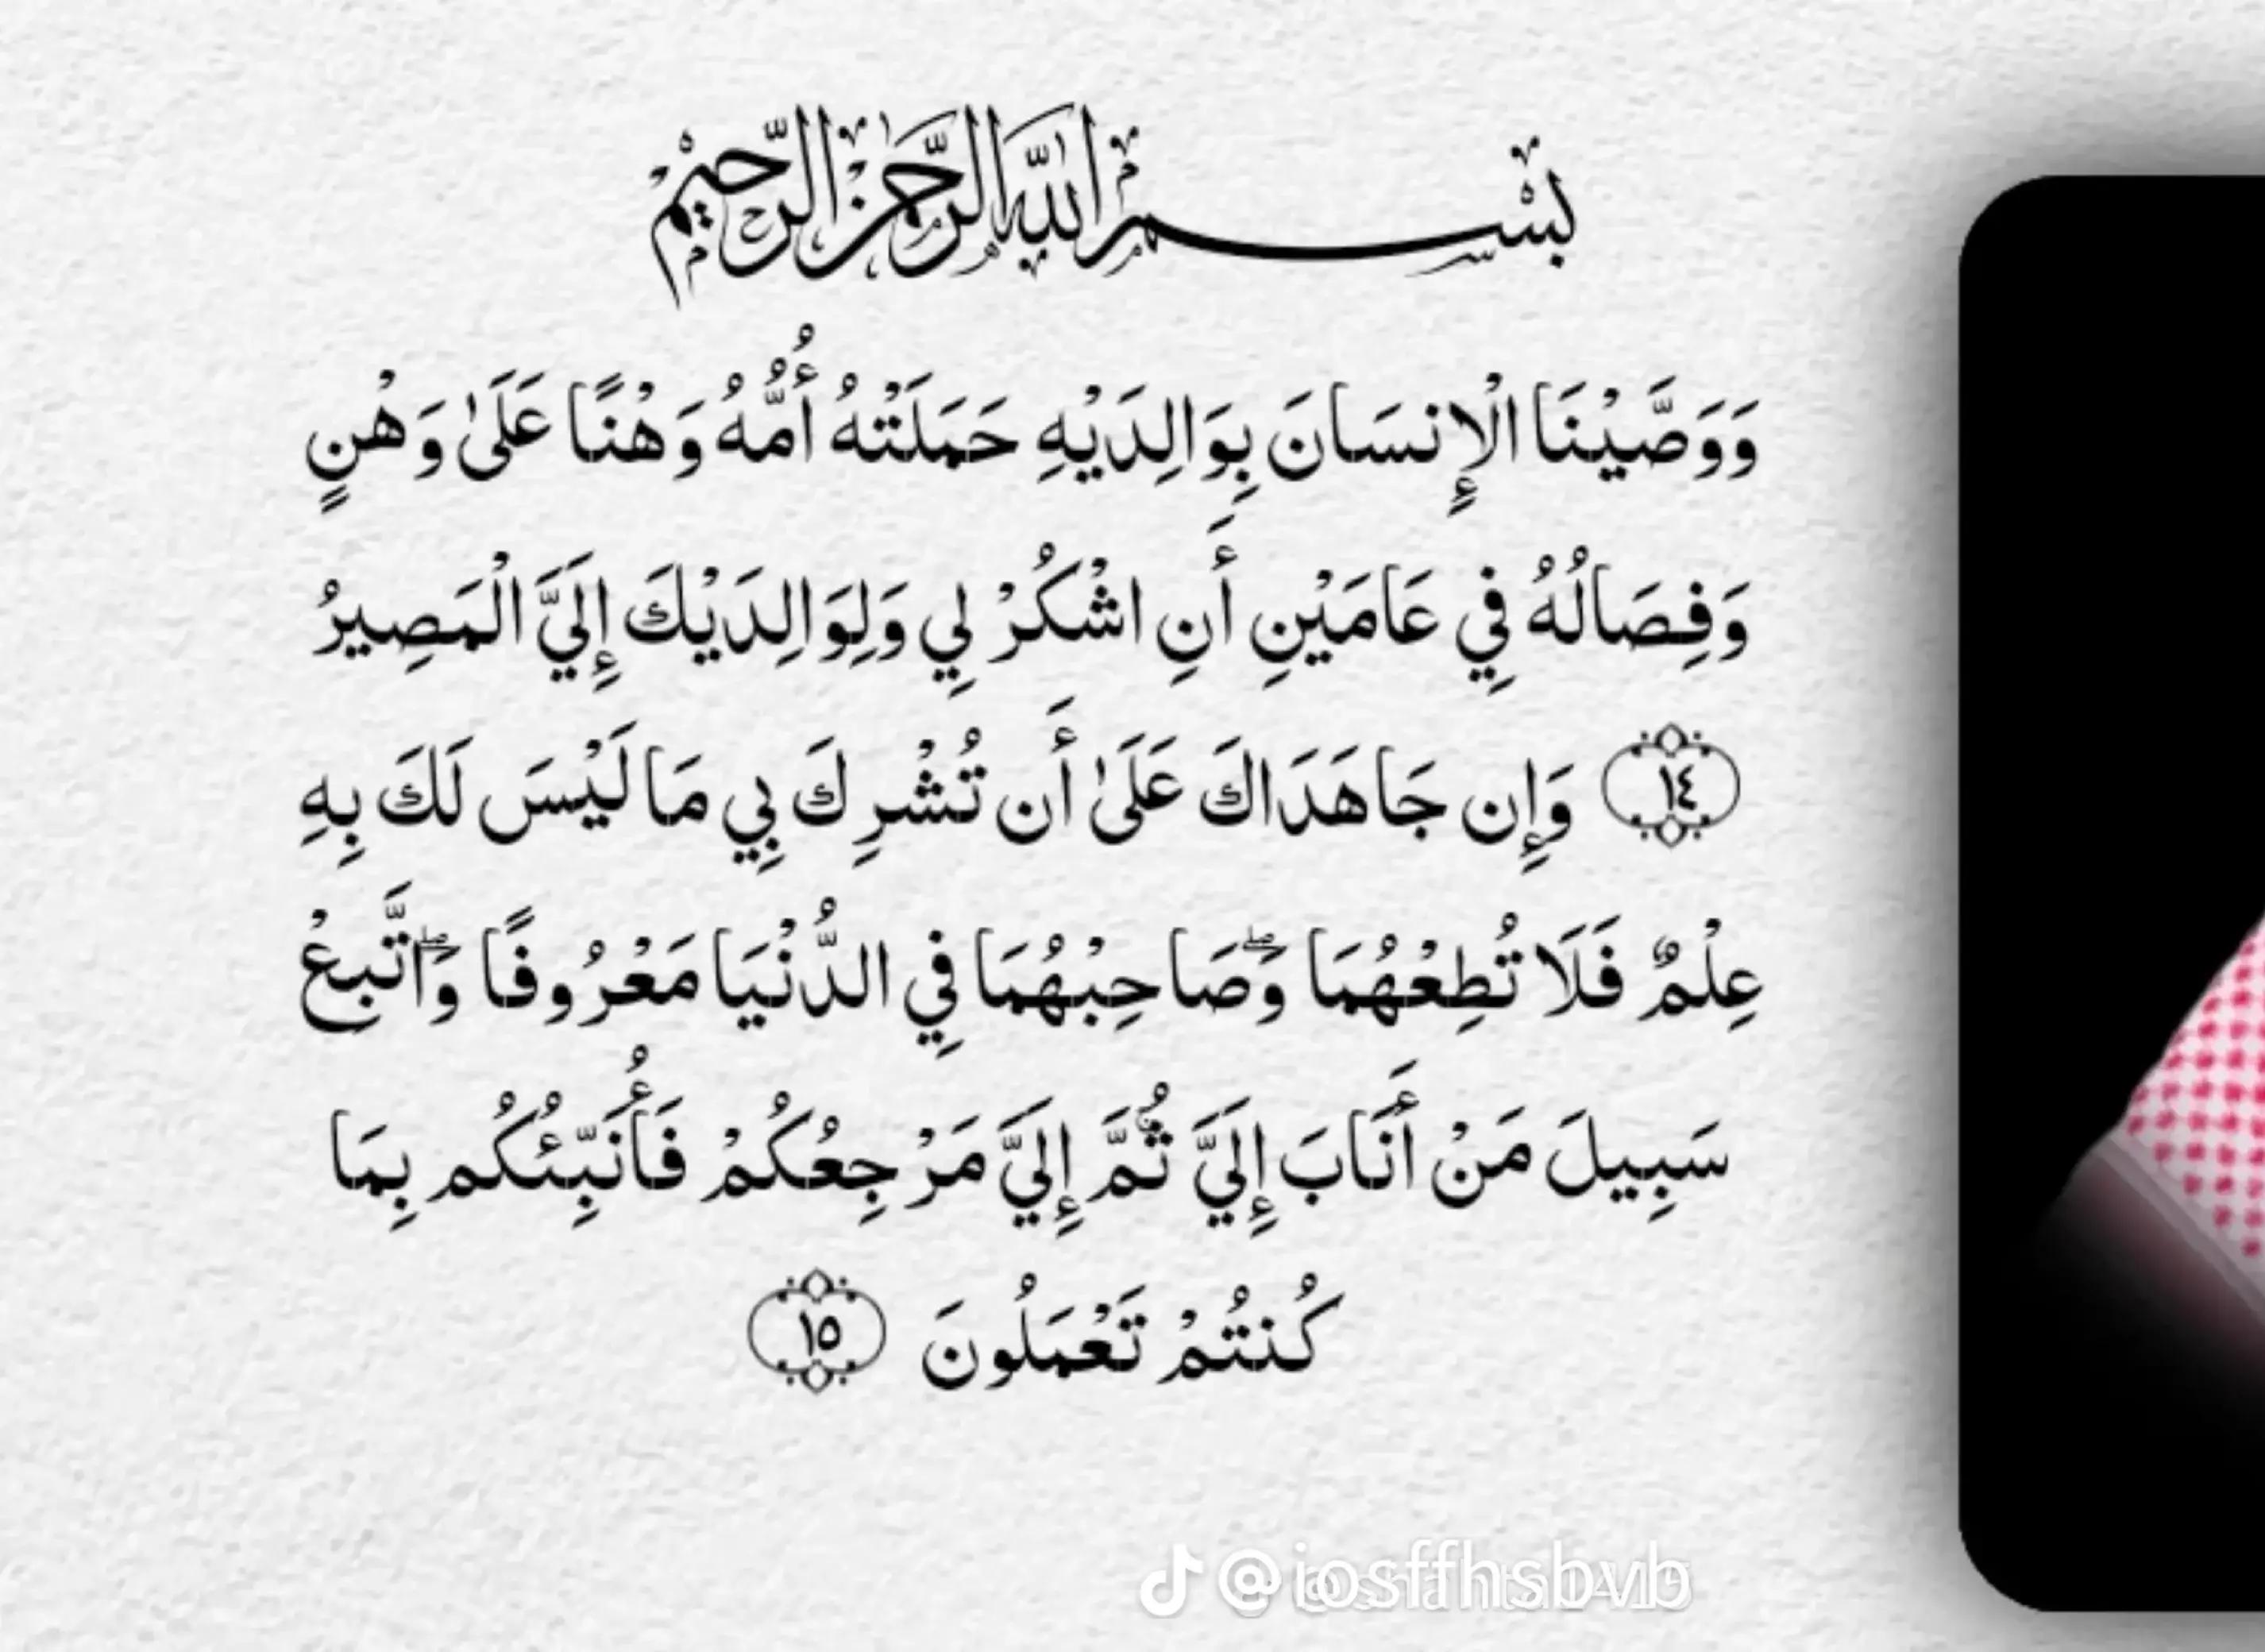 بِسْمِ اللَّهِ الرَّحْمَٰنِ الرَّحِيمِ
وَوَصَّيْنَا الْإِنسَانَ بِوَالِدَيْهِ حَمَلَتْهُ أُمُّهُ وَهْنًا عَلَىٰ وَهْنٍ
وَفِصَالُهُ فِي عَامَيْنِ أَنِ اشْكُرْ لِي وَلِوَالِدَيْكَ إِلَيَّ الْمَصِيرُ
١٤ وَإِن جَاهَدَاكَ عَلَىٰ أَن تُشْرِكَ بِي مَا لَيْسَ لَكَ بِهِ
عِلْمٌ فَلَا تُطِعْهُمَا ۖ وَصَاحِبْهُمَا فِي الدُّنْيَا مَعْرُوفًا ۖ وَاتَّبِعْ
سَبِيلَ مَنْ أَنَابَ إِلَيَّ ثُمَّ إِلَيَّ مَرْجِعُكُمْ فَأُنَبِّئُكُم بِمَا
كُنتُمْ تَعْمَلُونَ ١٥